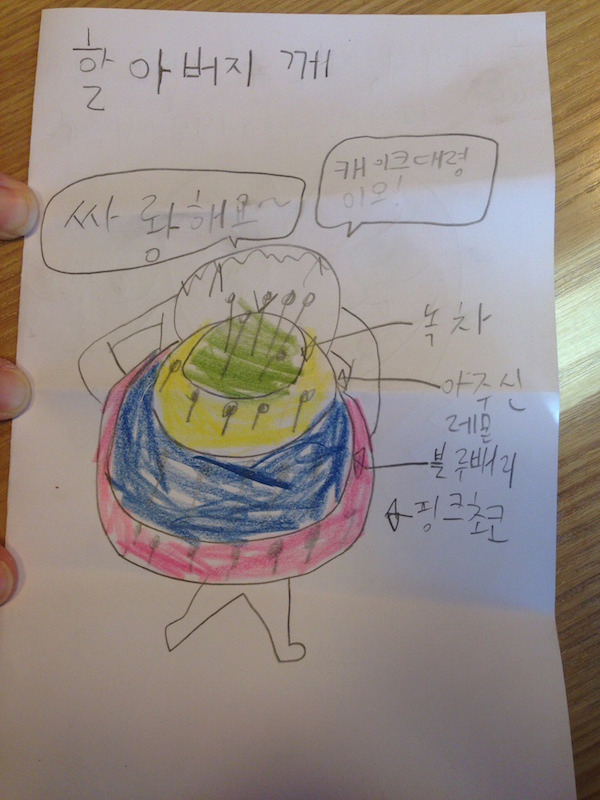 할아버지께
싸랑해요~
캐이크대령
이오!
녹차
아주신
레몬
블루배리
핑크초코